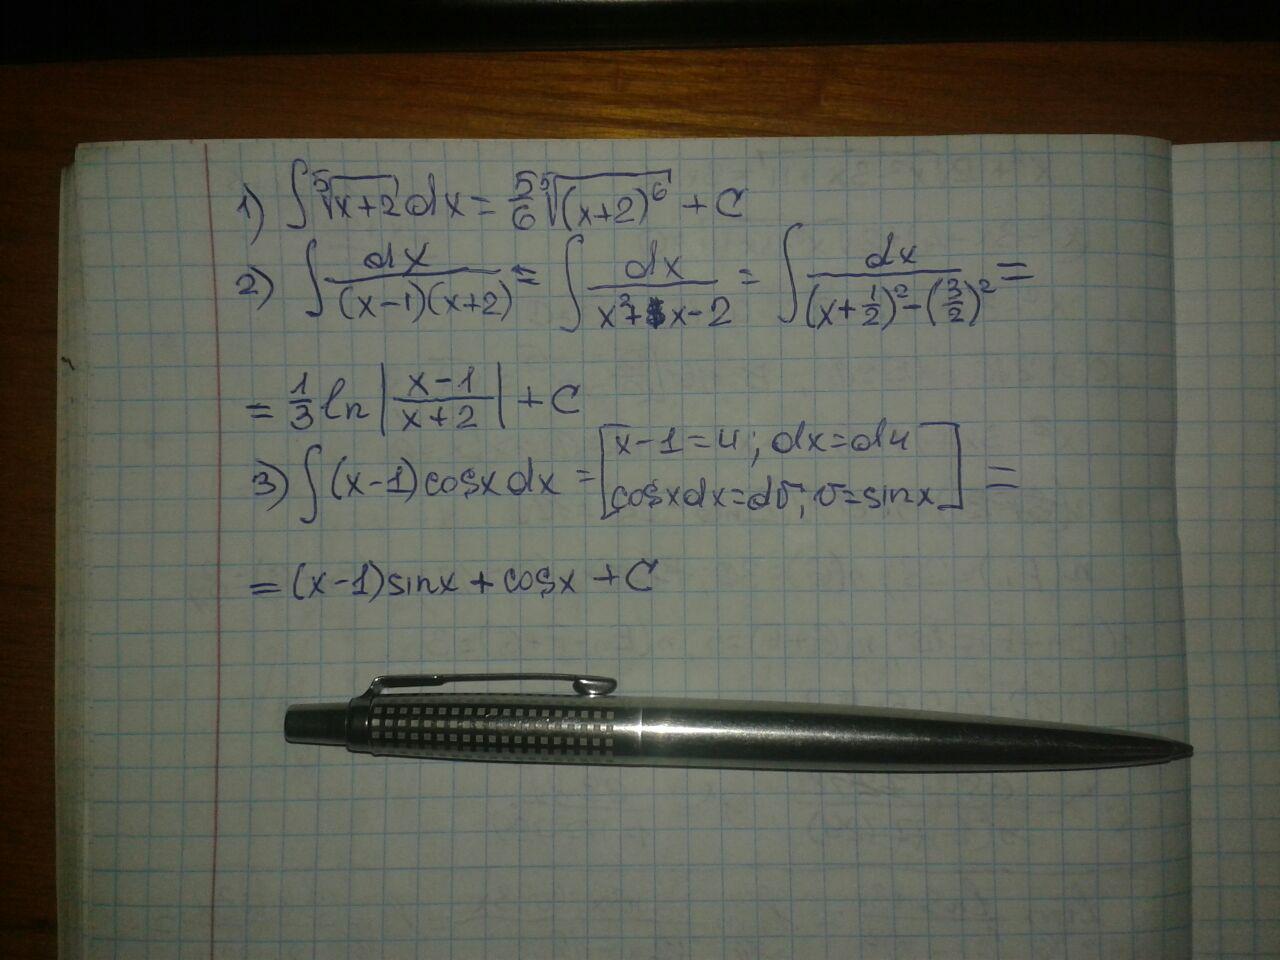 1) ∫ ⁵√(x+2) dx = 5/6 ⁵√((x+2)⁶) + C
2) ∫ dx/((x-1)(x+2)) = ∫ dx/(x²+x-2) = ∫ dx/((x+1/2)²-(3/2)²) =
= 1/3 ln |(x-1)/(x+2)| + C
3) ∫ (x-1) cosx dx = [x-1=u; dx=du
cosxdx=dv; v=sinx] =
= (x-1)sinx + cosx + C